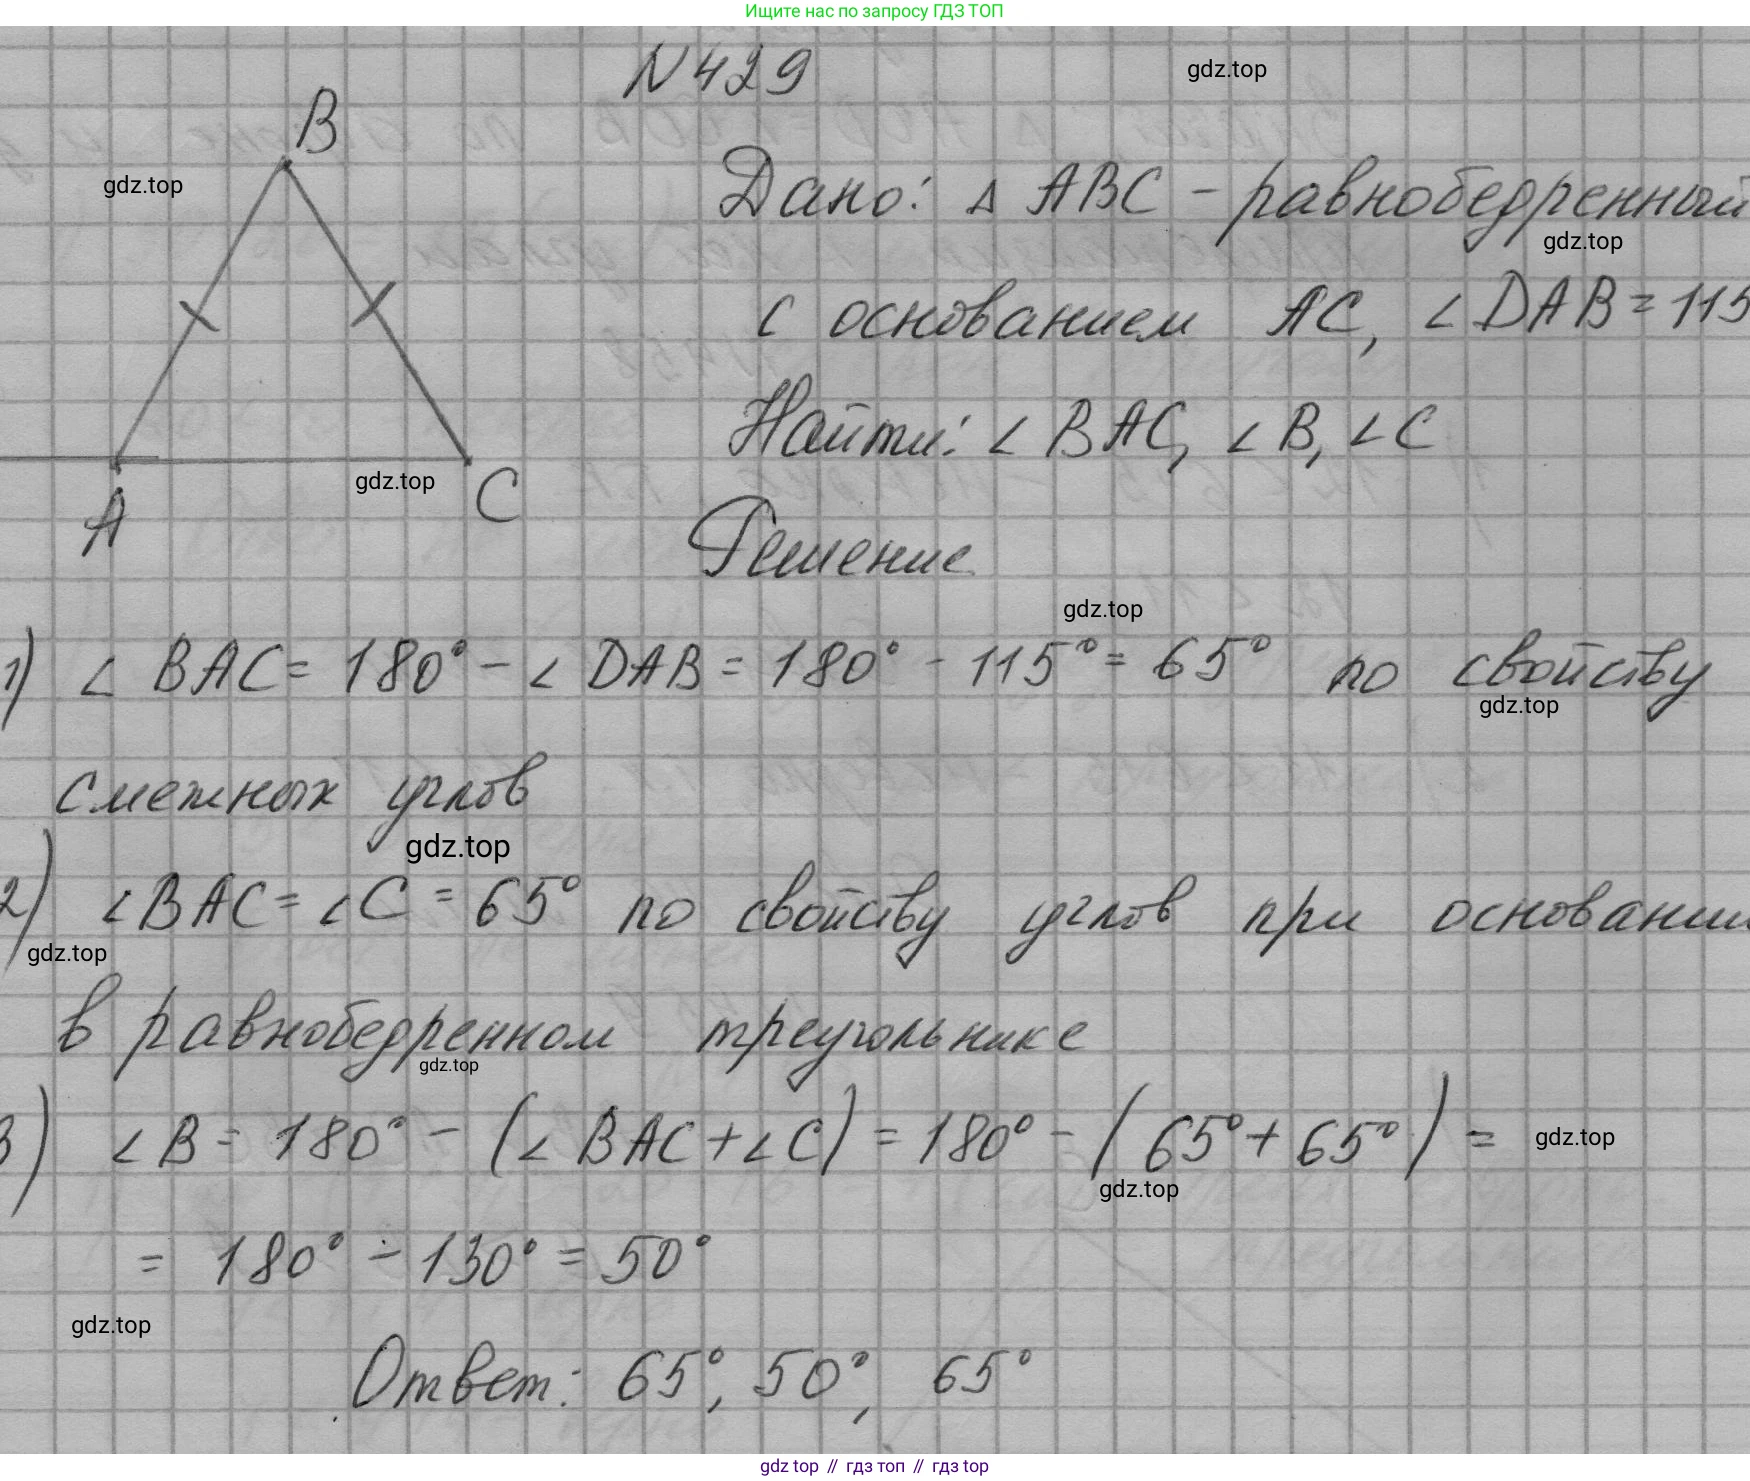 Ищите нас по запросу ГДЗ ТОП
N 429
gdz.top
B
gdz.top
Дано: Δ ABC - равнобедренный
gdz.top
с основанием AC, ∠ DAB = 115
Найти: ∠ BAC, ∠ B, ∠ C
gdz.top
A
C
Решение
gdz.top
1) ∠ BAC = 180° - ∠ DAB = 180° - 115° = 65° по свойству
gdz.top
смежных углов
gdz.top
2) ∠ BAC = ∠ C = 65° по свойству углов при основании
gdz.top
в равнобедренном треугольнике
gdz.top
3) ∠ B = 180° - (∠ BAC + ∠ C) = 180° - (65° + 65°) =
gdz.top
gdz.top
= 180° - 130° = 50°
gdz.top
Ответ: 65°, 50°, 65°
gdz top // гдз топ // gdz top